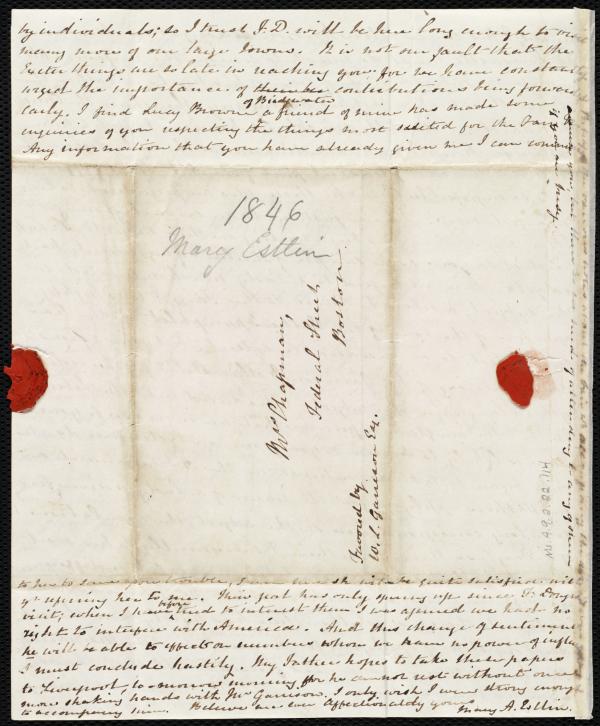 by individuals; so I trust F.D. will be here long enough to visit
many more of our large Towns. It is not our fault that the
Exeter things are so late in reaching you for we have constantly
urged the importance of contributions being forward
early. I find Lucy Browne of Bridgwater a friend of mine has made some
enquiries of you respecting the things most suited for the Fair
Any information that you have already given me I can
1846
Mary Estlin
Mrs Chapman,
Federal Street,
Boston
Favored by
W. L. Garrison Esq.
Ms.A.9.2.22.114
to her to save you trouble, I will be quite satisfied with
yr referring her to me. This zeal has only sprung up since F. Douglass
visit; when I have before tried to interest them I was assured we had no
right to interfere with America. And this change of sentiment
he will be able to effect on numbers whom we have no power of influencing
I must conclude hastily. My Father hopes to take these papers
to Liverpool to-morrow morning, for he cannot rest without once
more shaking hands with Mr Garrison. I only wish I were strong enough
to accompany him. Believe me ever affectionately yours
Mary A. Estlin.